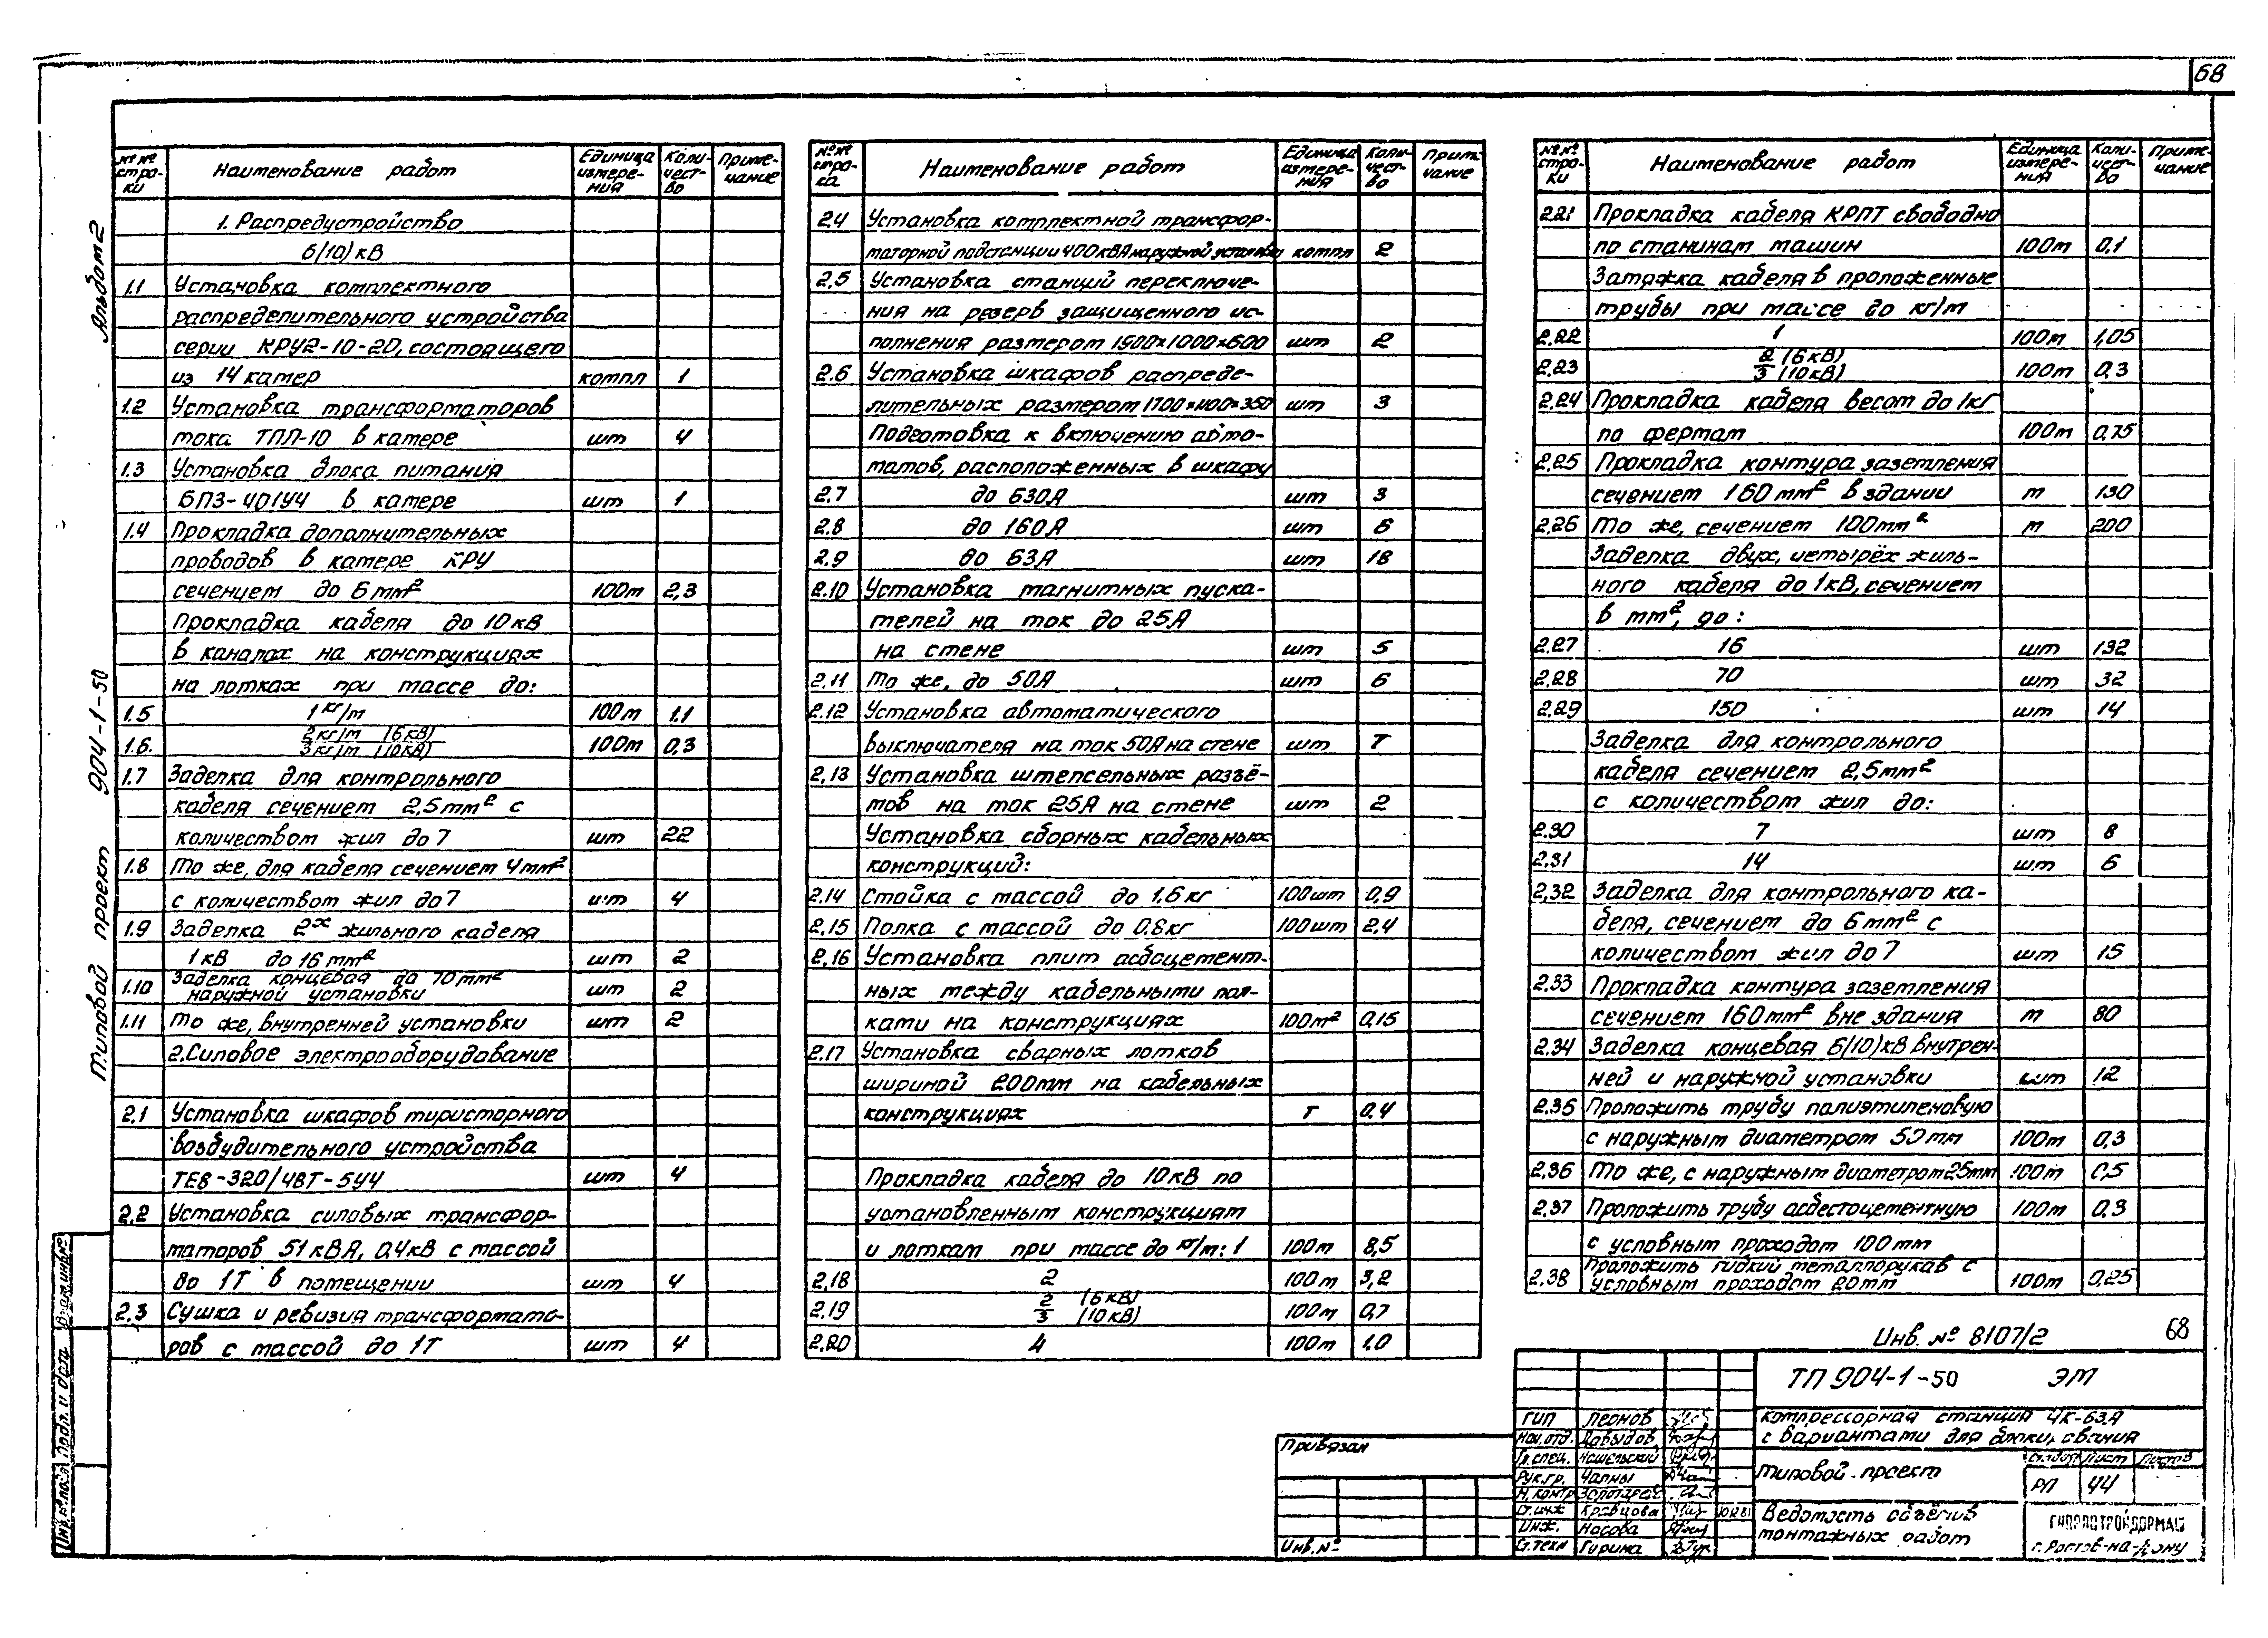 68
Альбом 2
Типовой проект 904-1-50
№№ строки Наименование работ Единица измерения Количество Примечание
1. Распредустройство
6/(10) кВ
1.1 Установка комплектного
распределительного устройства
серии КРУ2-10-20, состоящего
из 14 камер компл 1
1.2 Установка трансформаторов
тока ТПЛ-10 в камере шт 4
1.3 Установка блока питания
БПЗ-401У4 в камере шт 1
1.4 Прокладка дополнительных
проводов в камере КРУ
сечением до 6 мм² 100м 2,3
Прокладка кабеля до 10 кВ
в каналах на конструкциях
на лотках при массе до:
1.5 1 кг/м 100м 1.1
1.6. 2 кг/м (6 кВ)
3 кг/м (10 кВ) 100м 0,3
1.7 Заделка для контрольного
кабеля сечением 2,5 мм² с
количеством жил до 7 шт 22
1.8 То же, для кабеля сечением 4 мм²
с количеством жил до 7 шт 4
1.9 Заделка 2х жильного кабеля
1 кВ до 16 мм² шт 2
1.10 Заделка концевая до 70 мм²
наружной установки шт 2
1.11 То же, внутренней установки шт 2
2. Силовое электрооборудование
2.1 Установка шкафов тиристорного
возбудительного устройства
ТЕ8-320/48Т-5У4 шт 4
2.2 Установка силовых трансфор-
маторов 51 кВА, 0,4 кВ с массой
до 1Т в помещении шт 4
2.3 Сушка и ревизия трансформато-
ров с массой до 1Т шт 4
№№ строка Наименование работ Единица измерения Количество Примечание
2.4 Установка комплектной трансфор-
маторной подстанции 400 кВА наружной установки компл 2
2.5 Установка станций переключе-
ния на резерв защищенного ис-
полнения размером 1900×1000×600 шт 2
2.6 Установка шкафов распреде-
лительных размером 1700×1100×350 шт 3
Подготовка к включению авто-
матов, расположенных в шкафу
2.7 до 630А шт 3
2.8 до 160А шт 6
2.9 до 63А шт 18
2.10 Установка магнитных пуска-
телей на ток до 25А
на стене шт 5
2.11 То же, до 50А шт 6
2.12 Установка автоматического
выключателя на ток 50А на стене шт
2.13 Установка штепсельных разъё-
мов на ток 25А на стене шт 2
Установка сборных кабельных
конструкций:
2.14 Стойка с массой до 1.6 кг 100шт 0,9
2.15 Полка с массой до 0.8 кг 100шт 2,4
2.16 Установка плит асбоцемент-
ных между кабельными пол-
ками на конструкциях 100м² 0,15
2.17 Установка сварных лотков
шириной 200мм на кабельных
конструкциях т 0,4
Прокладка кабеля до 10 кВ по
установленным конструкциям
и лоткам при массе до кг/м: 1 100м 8,5
2.18 2 100м 3,2
2.19 2 (6 кВ)
3 (10 кВ) 100м 0,7
2.20 4 100м 1,0
№№ строки Наименование работ Единица измерения Количество Примечание
2.21 Прокладка кабеля КРПТ свободно
по станинам машин 100м 0,1
Затяжка кабеля в проложенные
трубы при массе до кг/м
2.22 1 100м 1,05
2.23 2 (6 кВ)
3 (10 кВ) 100м 0,3
2.24 Прокладка кабеля весом до 1кг
по фермам 100м 0,75
2.25 Прокладка контура заземления
сечением 160 мм² в здании м 130
2.26 То же, сечением 100мм² м 200
Заделка двух, четырёх жиль-
ного кабеля до 1 кВ, сечением
в мм², до:
2.27 16 шт 132
2.28 70 шт 32
2.29 150 шт 14
Заделка для контрольного
кабеля сечением 2,5 мм²
с количеством жил до:
2.30 7 шт 8
2.31 14 шт 6
2.32 Заделка для контрольного ка-
беля, сечением до 6 мм² с
количеством жил до 7 шт 15
2.33 Прокладка контура заземления
сечением 160 мм² вне здания м 80
2.34 Заделка концевая 6/(10) кВ внутрен-
ней и наружной установки шт 12
2.35 Проложить трубу полиэтиленовую
с наружным диаметром 50 мм 100м 0,3
2.36 То же, с наружным диаметром 25мм 100м 0,5
2.37 Проложить трубу асбестоцементную 100м 0,3
с условным проходом 100 мм
2.38 Проложить гибкий металлорукав с
условным проходом 20 мм 100м 0,25
Инв. № 8107/2 68
ТП 904-1-50 ЭМ
Компрессорная станция 4К-63А
с вариантами для блокирования
Типовой проект
Стадия Лист Листов
РП 44
Ведомость объёмов
монтажных работ
ГИПРОСТРОЙДОРМАШ
г. Ростов-на-Дону
ГИП Леонов
Нач. отд. Давыдов
Гл. спец.
Рук. гр. Чапны
Н. контр
Ст. инж Кравцова
Инж. Носова
Ст. техн Гирина
Привязан
Инв. №
Инв. № подл. Подп. и дата Взам. инв. №